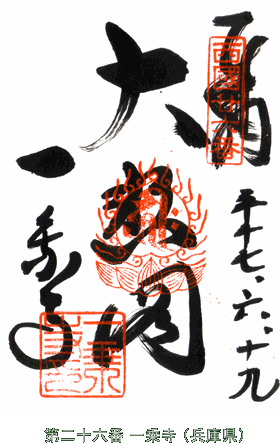 西國廿六番
平十七、六、十九
大悲閣
一乗寺
第二十六番 一乗寺（兵庫県）